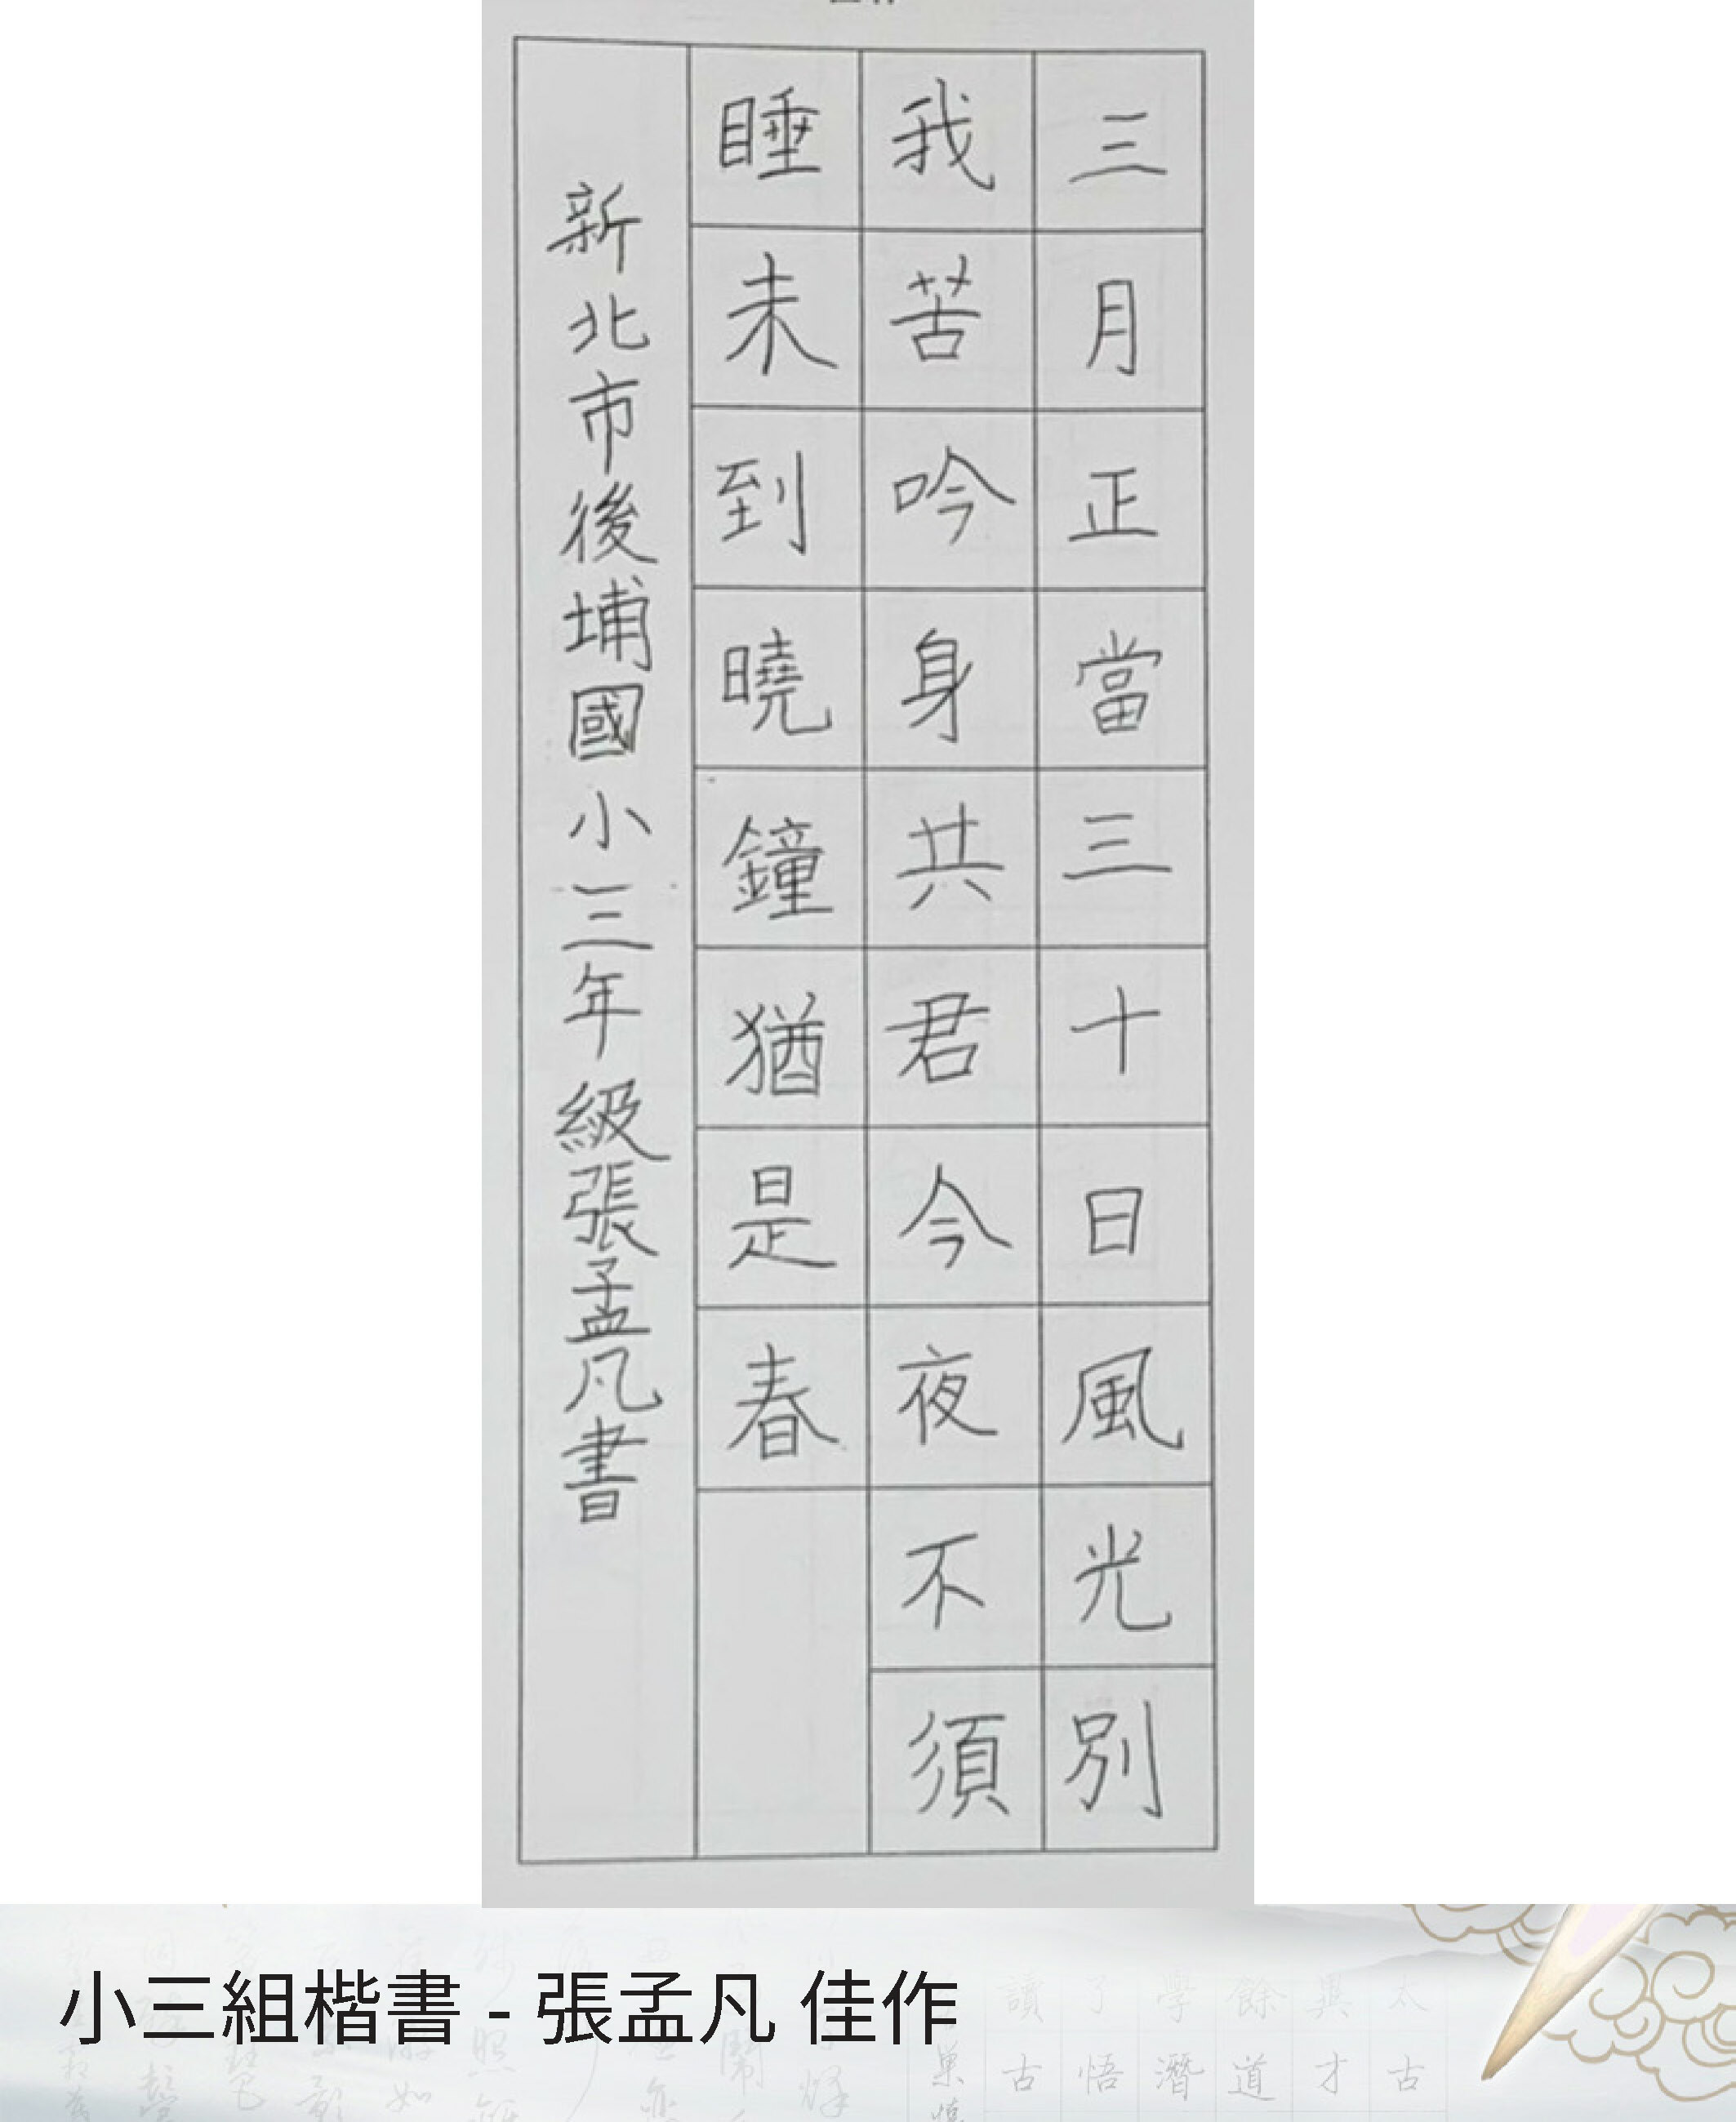 三月正當三十日風光別
我苦吟身共君今夜不須
睡未到曉鐘猶是春
新北市後埔國小三年級張孟凡書
小三組楷書 - 張孟凡 佳作
讀了學餘與太
古悟潛道才古